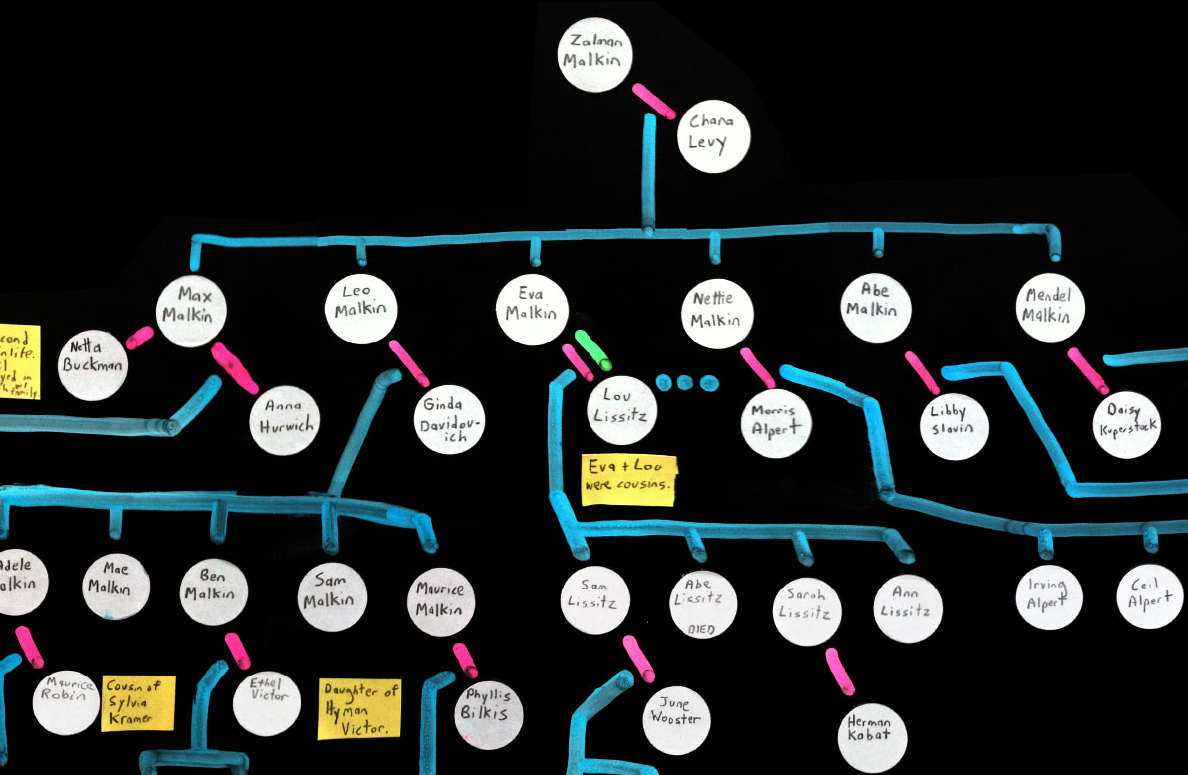 Zalman
Malkin
Chana
Levy
Max
Malkin
Leo
Malkin
Eva
Malkin
Nettie
Malkin
Abe
Malkin
Mendel
Malkin
Netta
Buckman
Anna
Hurwich
Ginda
Davidov-
ich
Lou
Lissitz
Morris
Alpert
Libby
Slavin
Daisy
Kuperstock
Eva + Lou
were cousins.
Mae
Malkin
Ben
Malkin
Sam
Malkin
Maurice
Malkin
Sam
Lissitz
Abe
Lissitz
DIED
Sarah
Lissitz
Ann
Lissitz
Irving
Alpert
Ceil
Alpert
Maurice
Robin
Cousin of
Sylvia
Kramer
Ethel
Victor
Daughter of
Hyman
Victor.
Phyllis
Bilkis
June
Wooster
Herman
Kobat